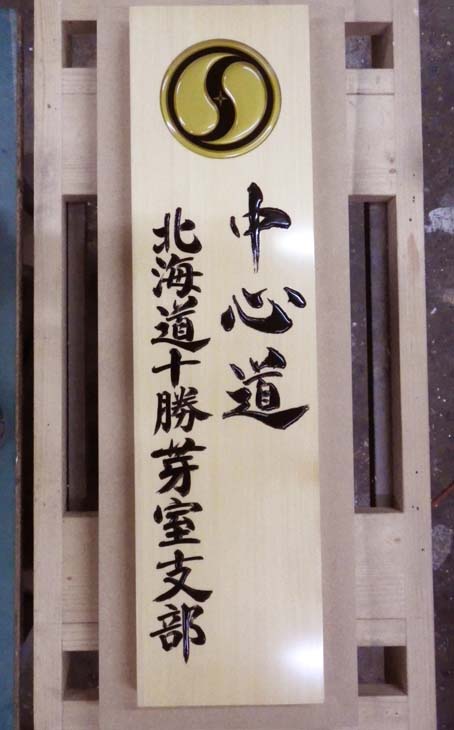 中心道
北海道十勝芽室支部